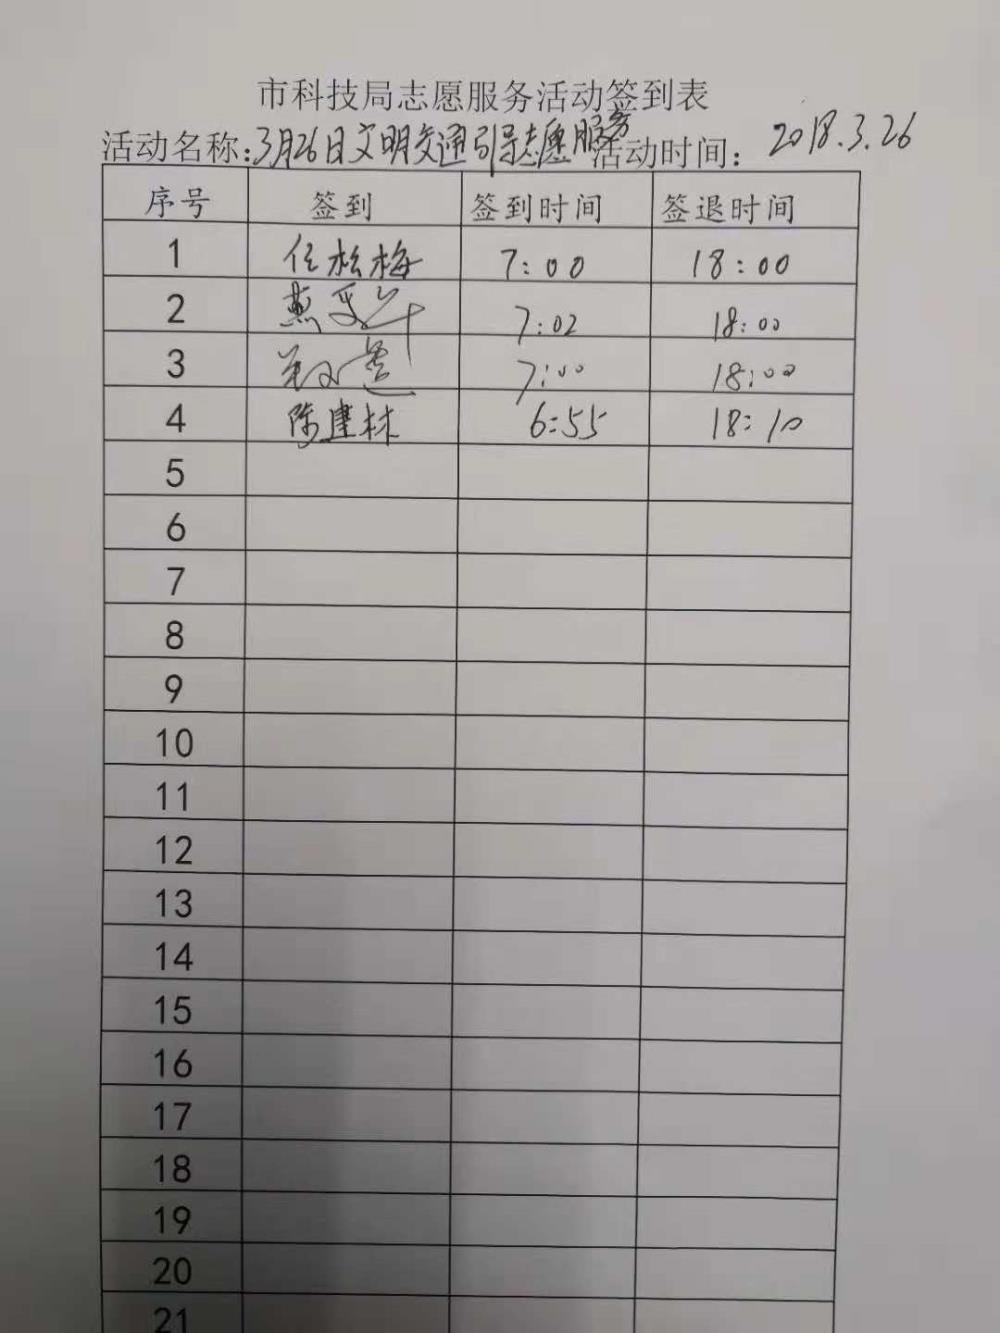 市科技局志愿服务活动签到表
活动名称:3月26日文明交通引导志愿服务 活动时间: 2018.3.26
序号 签到 签到时间 签退时间
1 任松梅 7:00 18:00
2 7:02 18:00
3 7:00 18:00
4 陈建林 6:55 18:10
5
6
7
8
9
10
11
12
13
14
15
16
17
18
19
20
21